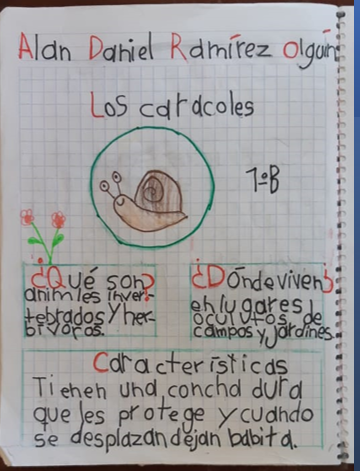 Alan Daniel Ramírez Olguín
Los caracoles
1ºB
¿Qué son?
animles inver-
tebrados y her-
bivoros.
¿Dónde viven?
en lugares
ocultos de
campos y jardines.
Características
Tienen una concha dura
que les protege y cuando
se desplazan dejan babita.